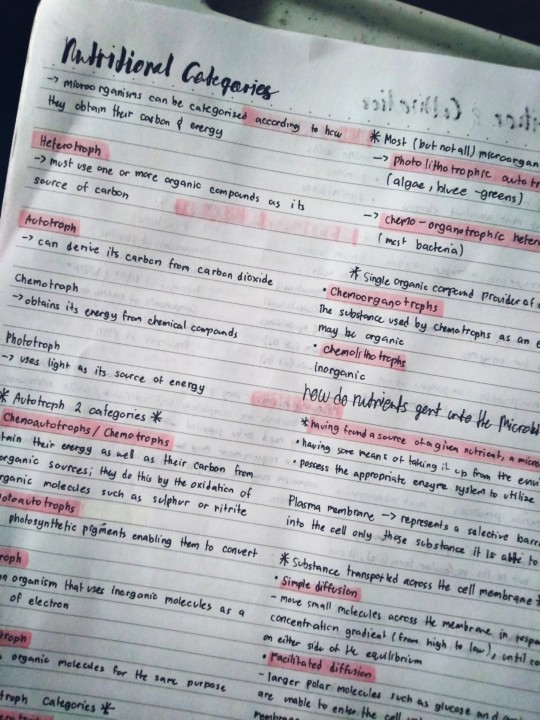 Nutritional Categories
-> microorganisms can be categorized according to how
they obtain their carbon & energy
Heterotroph
-> must use one or more organic compounds as its
source of carbon
Autotroph
-> can derive its carbon from carbon dioxide
Chemotroph
-> obtains its energy from chemical compounds
Phototroph
-> uses light as its source of energy
* Autotroph 2 categories *
Chemoautotrophs / Chemotrophs
tain their energy as well as their carbon from
organic sources; they do this by the oxidation of
rganic molecules such as sulphur or nitrite
otoautotrophs
photosynthetic pigments enabling them to convert
roph
n organism that uses inorganic molecules as a
of electron
troph
organic molecules for the same purpose
troph categories *
* Most (but not all) microorgan
-> Photolithotrophic autotr
(algae, bluee-greens)
-> chemo-organotrophic heter
(most bacteria)
* Single organic compound provider of
• Chemoorganotrophs
The substance used by chemotrophs as an e
may be organic
• chemolithotrophs
Inorganic
how do nutrients gent into the Microbi
* having found a source of a given nutrient, a micro
• having some means of taking it up from the envi
• possess the appropriate enzyme system to utilize
Plasma membrane -> represents a selective barri
into the cell only those substance it is able to
* Substance transported across the cell membrane *
• Simple diffusion
- move small molecules across the membrane in respon
concentration gradient (from high to low), until co
on either side of the equilibrium
• Facilitated diffusion
- larger polar molecules such as glucose and
are unable to enter the cell
membrane